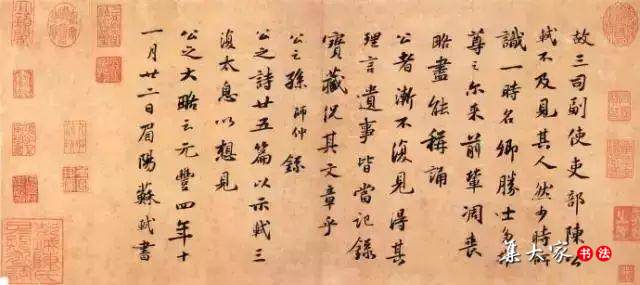 故三司副使吏部陳公
軾不及見其人然少時所
識一時名卿勝士多推
尊之尔来前輩凋喪
略盡能稱誦
公者漸不復見得其
理言遺事皆當記録
寶藏況其文章乎
公之孫師仲録
公之詩廿五篇以示軾三
復太息以想見
公之大略云元豐四年十
一月廿二日眉陽蘇軾書
集大家书法